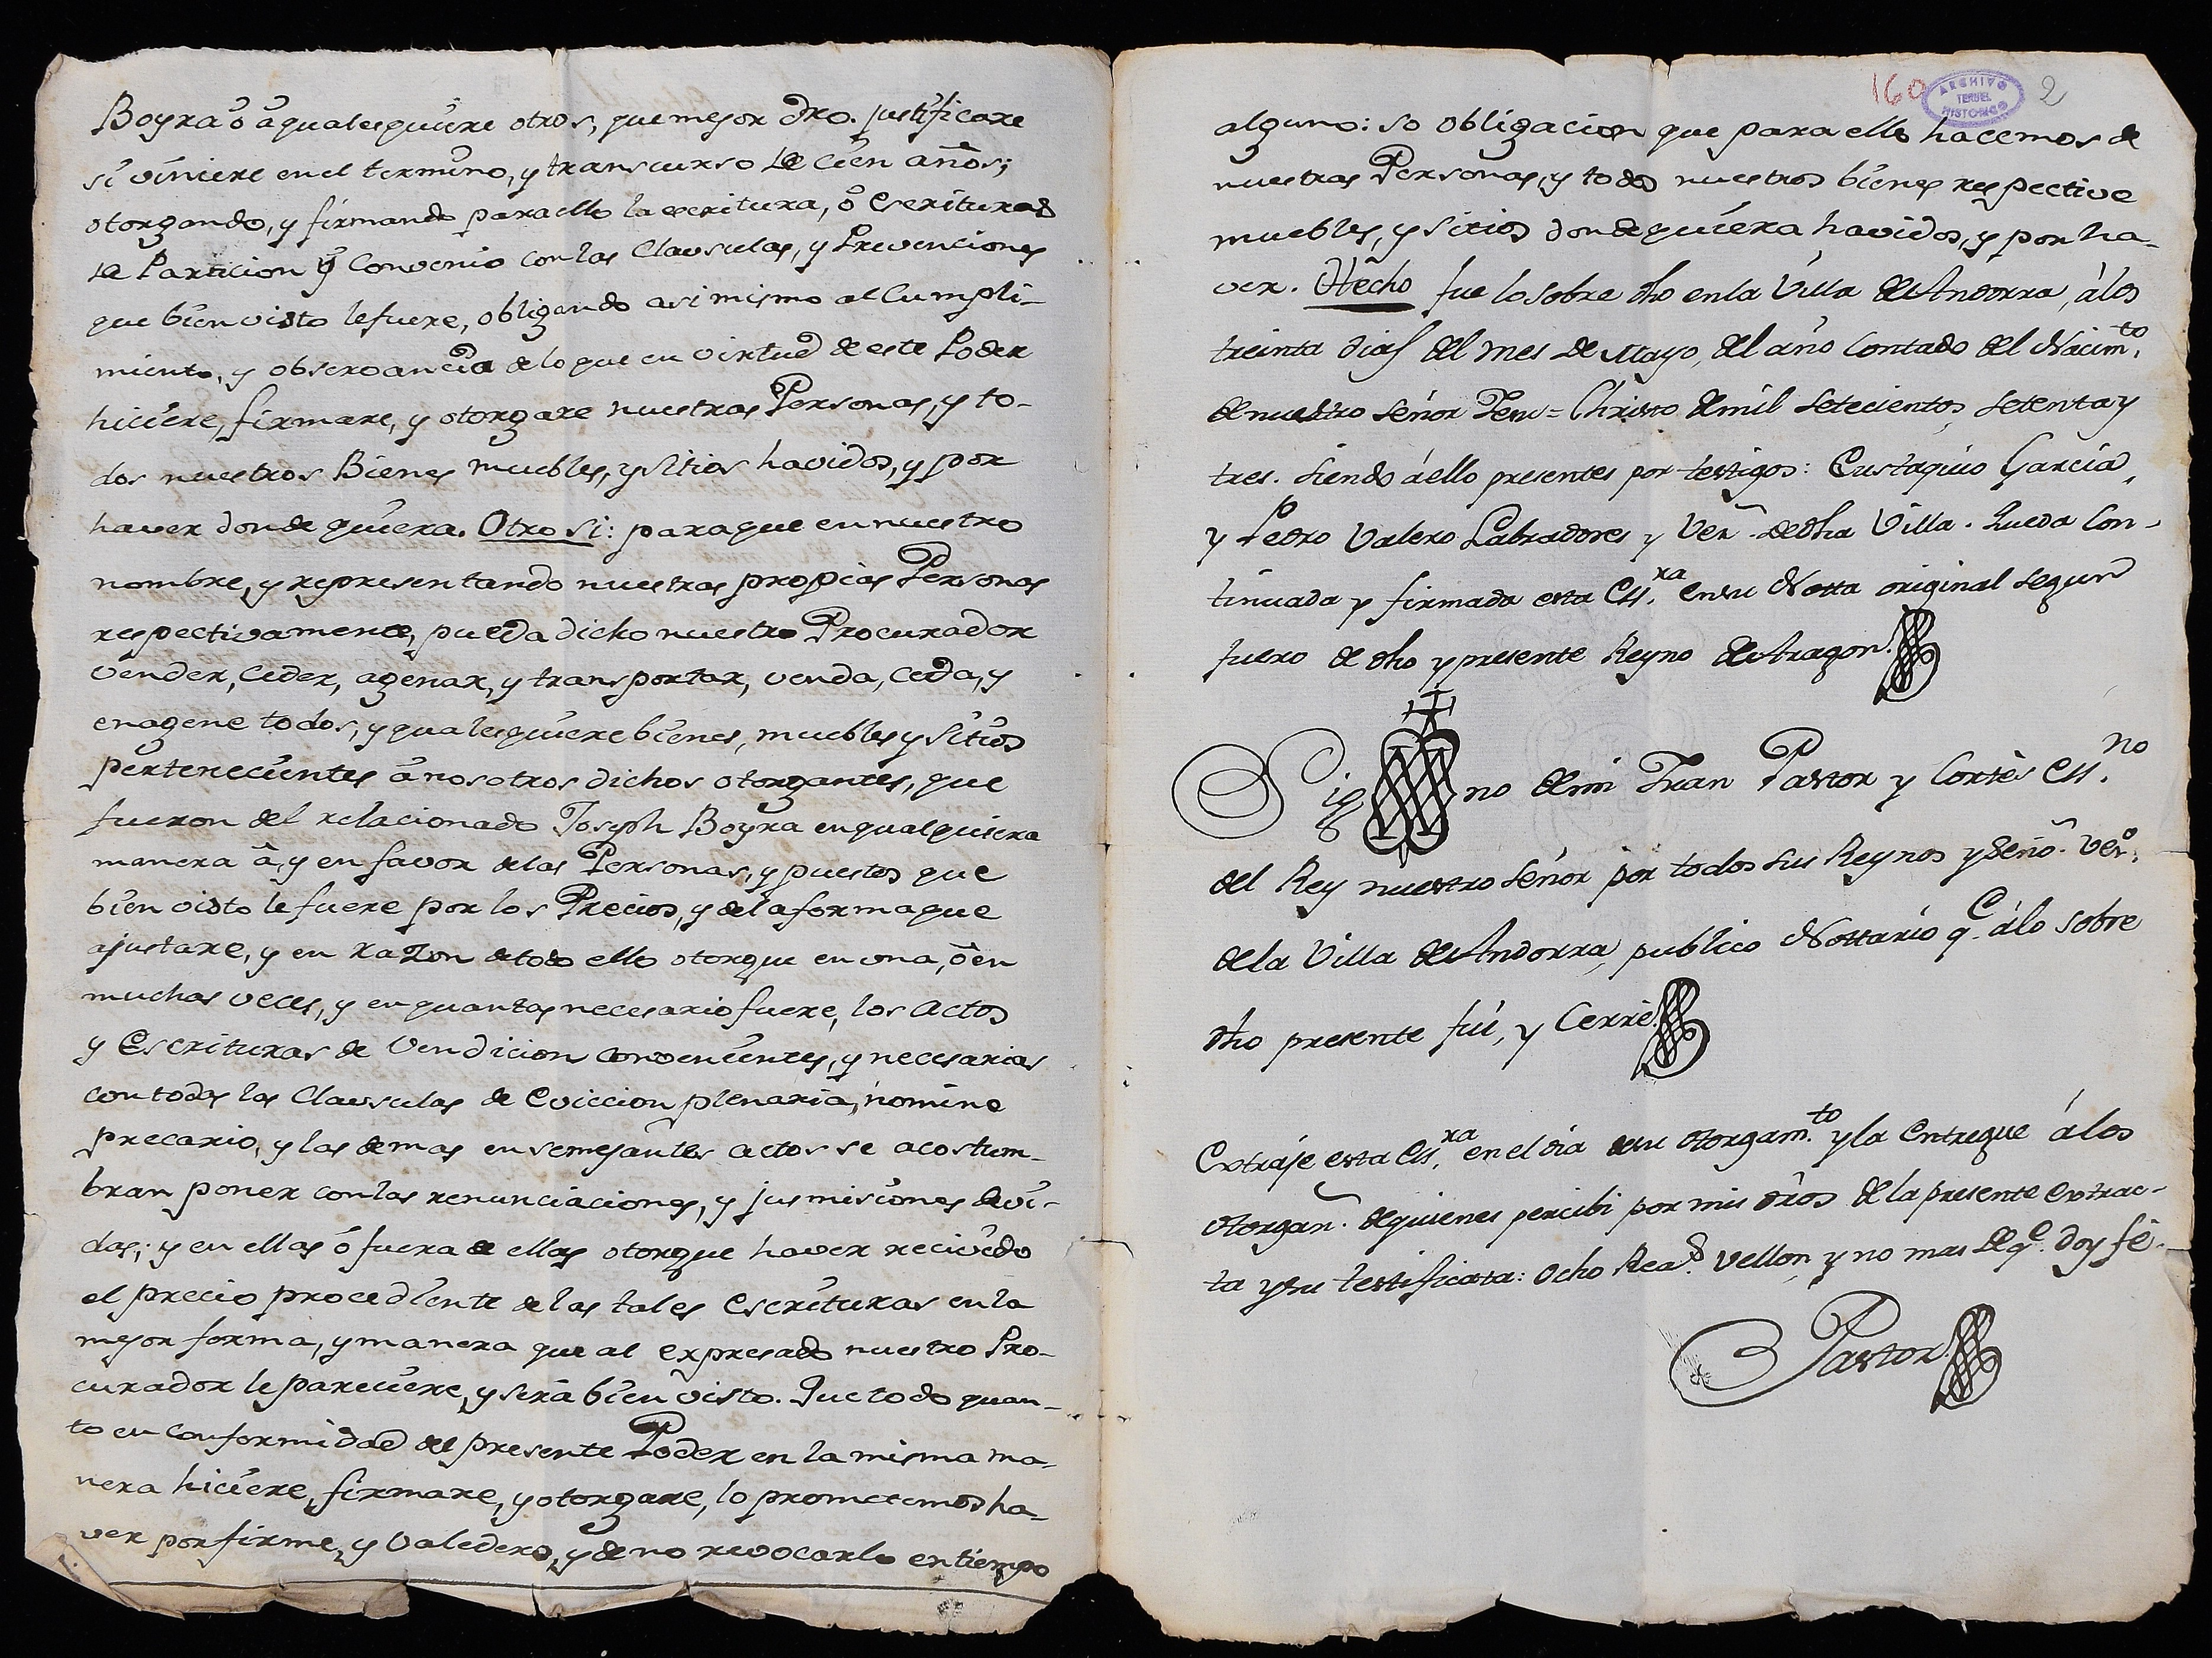 Boyra ô â qualesquiere otros, que mejor dro. justificare
si viniere en el termino, y transcurso de cien años;
otorgando, y firmando para ello la escritura, ô Escrituras
de Particion y Convenio con las Clausulas, y Prevenciones
que bien visto le fuere, obligando asi mismo al Cumpli-
miento, y observancia de lo que en virtud de este Poder
hiciere, firmare, y otorgare nuestras Personas, y to-
dos nuestros Bienes muebles, y sitios havidos, y por
haver donde quiera. Otro si: para que en nuestro
nombre, y representando nuestras propias Personas
respectivamente, pueda dicho nuestro Procurador
vender, ceder, agenar, y transportar, venda, ceda, y
enagene todos, y qualesquiere bienes, muebles y sitios
pertenecientes â nosotros dichos otorgantes, que
fueron del relacionado Joseph Boyra en qualquiera
manera â, y en favor de las Personas, y puestos que
bien visto le fuere por los Precios, y de la forma que
ajustare, y en razon de todo ello otorgue en una, ô en
muchas veces, y en quantas necesario fuere, los actos
y Escrituras de Vendicion convenientes, y necesarias
con todas las Clausulas de Eviccion plenaria, nomine
precario, y las demas en semejantes actos se acostum-
bran poner con las renunciaciones, y jusmisiones devi-
das; y en ellas ó fuera de ellas otorgue haver recivido
el precio procediente de las tales escrituras en la
mejor forma, y manera que al expresado nuestro Pro-
curador le pareciere, y será bien visto. Que todo quan-
to en conformidad del presente Poder en la misma ma-
nera hiciere, firmare, y otorgare, lo prometemos ha-
ver por firme, y valedero, y de no revocarlo en tiempo
160 ARCHIVO TERUEL HISTORICO 2
alguno: so obligacion que para ello hacemos de
nuestras Personas, y todos nuestros bienes respective
muebles, y sitios donde quiera havidos, y por ha-
ver. Hecho fue lo sobre dho en la Villa de Andorra, á los
treinta dias del mes de Mayo, del año contado del Nacim.to
de nuestro señor Jesu=Christo de mil setecientos, setenta y
tres. Siendo á ello presentes por testigos: Eustaquio Garcia,
y Pedro Valero Labradores y Vez.s de dha Villa. Queda con-
tinuada y firmada esta Ess.ra en su Notta original segun
fuero de dho y presente Reyno de Aragon.
Sig no de mi Juan Pastor y Cortès Ess.no
del Rey nuestro señor por todos sus Reynos y Seño.s Vez.o
de la Villa de Andorra, publico Nottario q.e á lo sobre
dho presente fuí, y Cerrè.
Extraje esta Ess.ra en el dia de su otorgam.to y la entregue á los
otorgan.s de quienes percibi por mis dros de la presente extrac-
ta y su testificata: ocho Rea.s vellon y no mas de q.e doy fé.
Pastor